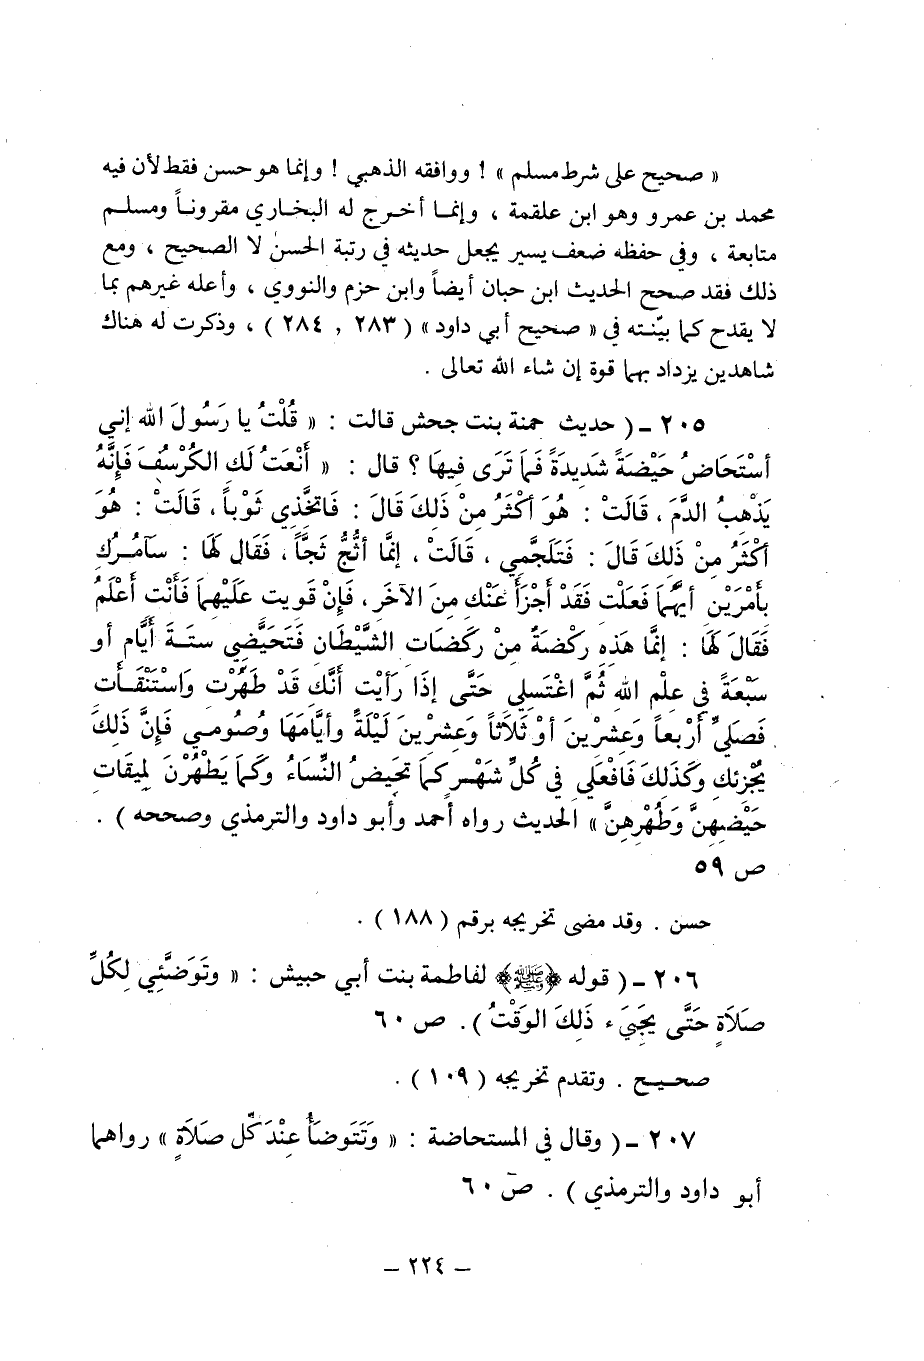 « صحيح على شرط مسلم » ! ووافقه الذهبي ! وإنما هو حسن فقط لأن فيه
محمد بن عمرو وهو ابن علقمة ، وإنمـا أخـرج له البخـاري مقرونـاً ومسلـم
متابعة ، وفي حفظه ضعف يسير يجعل حديثه في رتبة الحسن لا الصحيح ، ومع
ذلك فقد صحح الحديث ابن حبان أيضاً وابن حزم والنووي ، وأعله غيرهم بما
لا يقدح كما بيّنـته في « صحيح أبي داود » ( ٢٨٣ , ٢٨٤ ) ، وذكرت له هناك
شاهدين يزداد بهما قوة إن شاء الله تعالى .
٢٠٥ ـ ( حديث حمنة بنت جحش قالت : « قُلْتُ يا رَسُولَ الله إني
أسْتَحَاضُ حَيْضَةً شَديدَةً فَمَا تَرَى فيهَا ؟ قال : « أَنْعَتُ لَك الكُرْسُفَ فَإِنَّهُ
يَذْهبُ الدَّمَ ، قَالَتْ : هُوَ أكْثَرُ مِنْ ذَلِكَ قَالَ : فَاتخَّذي ثَوْباً ، قَالَتْ : هُوَ
أكْثَرُ مِنْ ذَلكَ قَالَ : فَتَلَجَّمي ، قَالَتْ ، إنمَّا أثُجُّ ثَجَّاً ، فَقَال لهَا : سَآمُـرُك
بأَمْرَيْن أيهُّمَا فَعَلْت فَقَدْ أَجْزَأَ عَنْك مِنَ الآخَر ، فَإنْ قَويت عَلَيْهما فَأَنْت أَعْلَمُ
فَقَالَ لهَا : إنمَّا هَذه ركْضَةٌ منْ ركَضَات الشَّيْطَان فَتَحَيَّضي ستَـةَ أَيَّام أو
سَبْعَةً في علْم الله ثُمَّ اغْتَسلي حَتَّى إذَا رَأيْت أَنَّك قَدْ طَهُرْت وَاسْتَنْقَـأْت
فَصَليِّ أَرْبعاً وَعشرْينَ أوْ ثَلاَثاً وَعشريْنَ لَيْلَةً وأيَّامَهَا وصُومـي فَإنَّ ذَلكَ
يُجْزئك وكَذَلكَ فَافْعَلي في كُلِّ شَهْـر كمَا تحَيضُ النِّسَاءُ وكمَا يَطْهُرْنَ لميقَات
حَيْضهنَّ وَطُهْرهنَّ » الحديث رواه أحمد وأبو داود والترمذي وصححه ) .
ص ٥٩
حسن . وقد مضى تخريجه برقم ( ١٨٨ ) .
٢٠٦ ـ ( قوله ﴿ﷺ﴾ لفاطمة بنت أبي حبيش : « وتَوَضَّئِي لكُلِّ
صَلاَةٍ حَتَّى يجَيَء ذَلِكَ الوَقْتُ ) . ص ٦٠
صحـيـح . وتقدم تخريجه ( ١٠٩ ) .
٢٠٧ ـ ( وقال في المستحاضة : « وَتَتَوضَأُ عِنْدَ كلّ صَلاَةٍ » رواهما
أبو داود والترمذي ) . ص ٦٠
– ٢٢٤ –